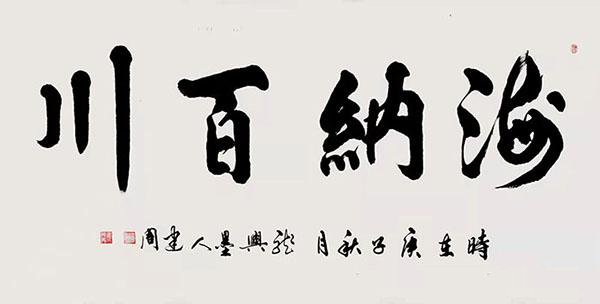 海納百川
時在庚子秋月龍興墨人建周